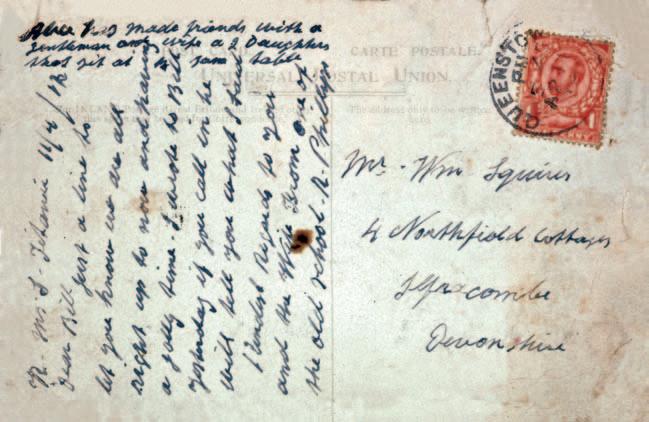 Alice has made friends with a
gentleman and wife a 2 Daughters
that sit at the same table
R. M. S. Titanic 11/4/12
Dear Bill just a line to
let you know we are all
right up to now and having
a jolly time. I wrote to Bill
yesterday if you call in he
will tell you what I said
Kindest Regards to you
and the Wife From one of
the old school. R. Phillips
CARTE POSTALE.
UNIVERSAL POSTAL UNION.
The address only to be written
here.
QUEENSTOWN
Mr. Wm Squires
4 Northfield Cottages
Ilfracombe
Devonshire